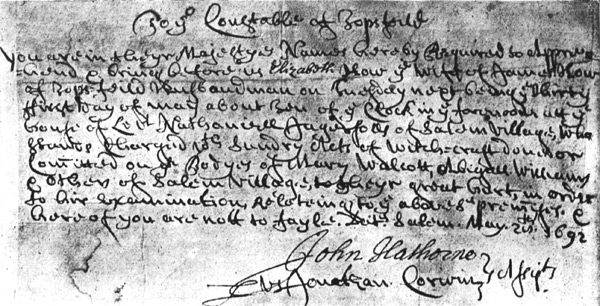 To ye Constable of Topsfeild
You are in theyr Majestyes Names hereby Required to apprehend
& bring before us Elizabeth How ye wife of James How
of Topsfeild Husbandman on Tuesday next being ye thirty
first day of may about Ten of ye Clock in ye forenoon att ye
house of Levt Nathaniell Ingersolls of Salem Village, who
stands Charged wth Sundry Acts of Witchcraft don or
Comitted on ye Bodyes of Mary Walcott, Abigall Williams
& others of Salem Village, to theyr great hurt, in order
to hir examination, relateing to ye abovesd premises. &
hereof you are nott to fayle. Dat. Salem. May. 1692
John Hathorne
Jonathan. Corwin Assists